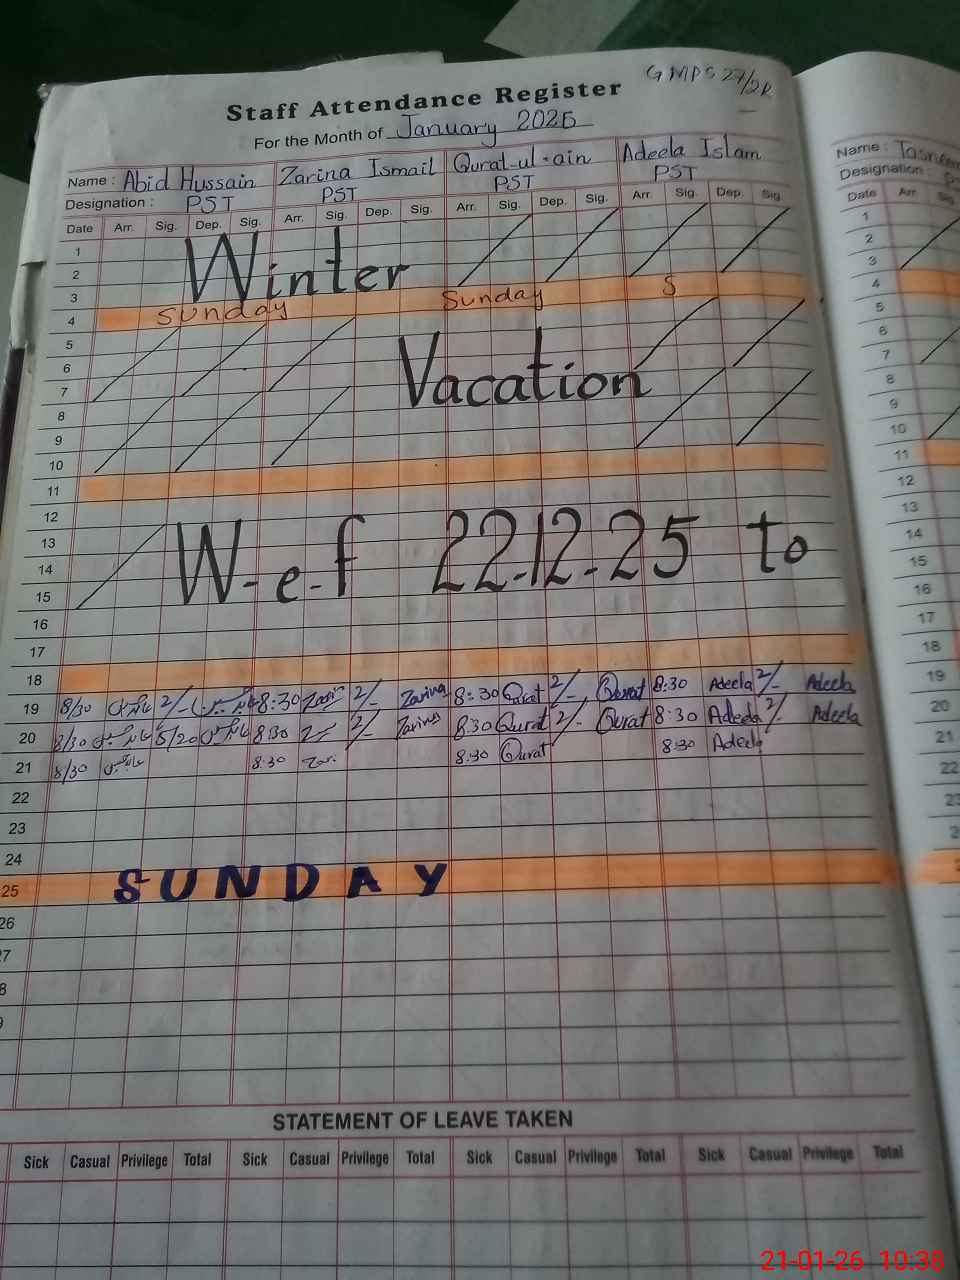 GMPS 27/2R
Staff Attendance Register
For the Month of January 2026
Name : Abid Hussain Zarina Ismail Qurat-ul-ain Adeela Islam
Designation : PST PST PST PST
Date Arr. Sig. Dep. Sig. Arr. Sig. Dep. Sig. Arr. Sig. Dep. Sig. Arr. Sig. Dep. Sig.
1
2 Winter
3
4 Sunday Sunday S
5
6 Vacation
7
8
9
10
11
12
13
14 W-e-f 22-12-25 to
15
16
17
18
19 8/30 2/- 8:30 Zarina 2/- Zarina 8:30 Qurat 2/- Qurat 8:30 Adeela 2/- Adeela
20 8/30 5/20 8:30 2/- Zarina 8:30 Qurat 2/- Qurat 8:30 Adeela 2/- Adeela
21 8/30 8:30 8:30 Qurat 8:30 Adeela
22
23
24
25 SUNDAY
26
STATEMENT OF LEAVE TAKEN
Sick Casual Privilege Total Sick Casual Privilege Total Sick Casual Privilege Total Sick Casual Privilege Total
Name :
Designation :
Date Arr.
1
2
3
4
5
6
7
8
9
10
11
12
13
14
15
16
17
18
19
20
21
22
21-01-26 10:38